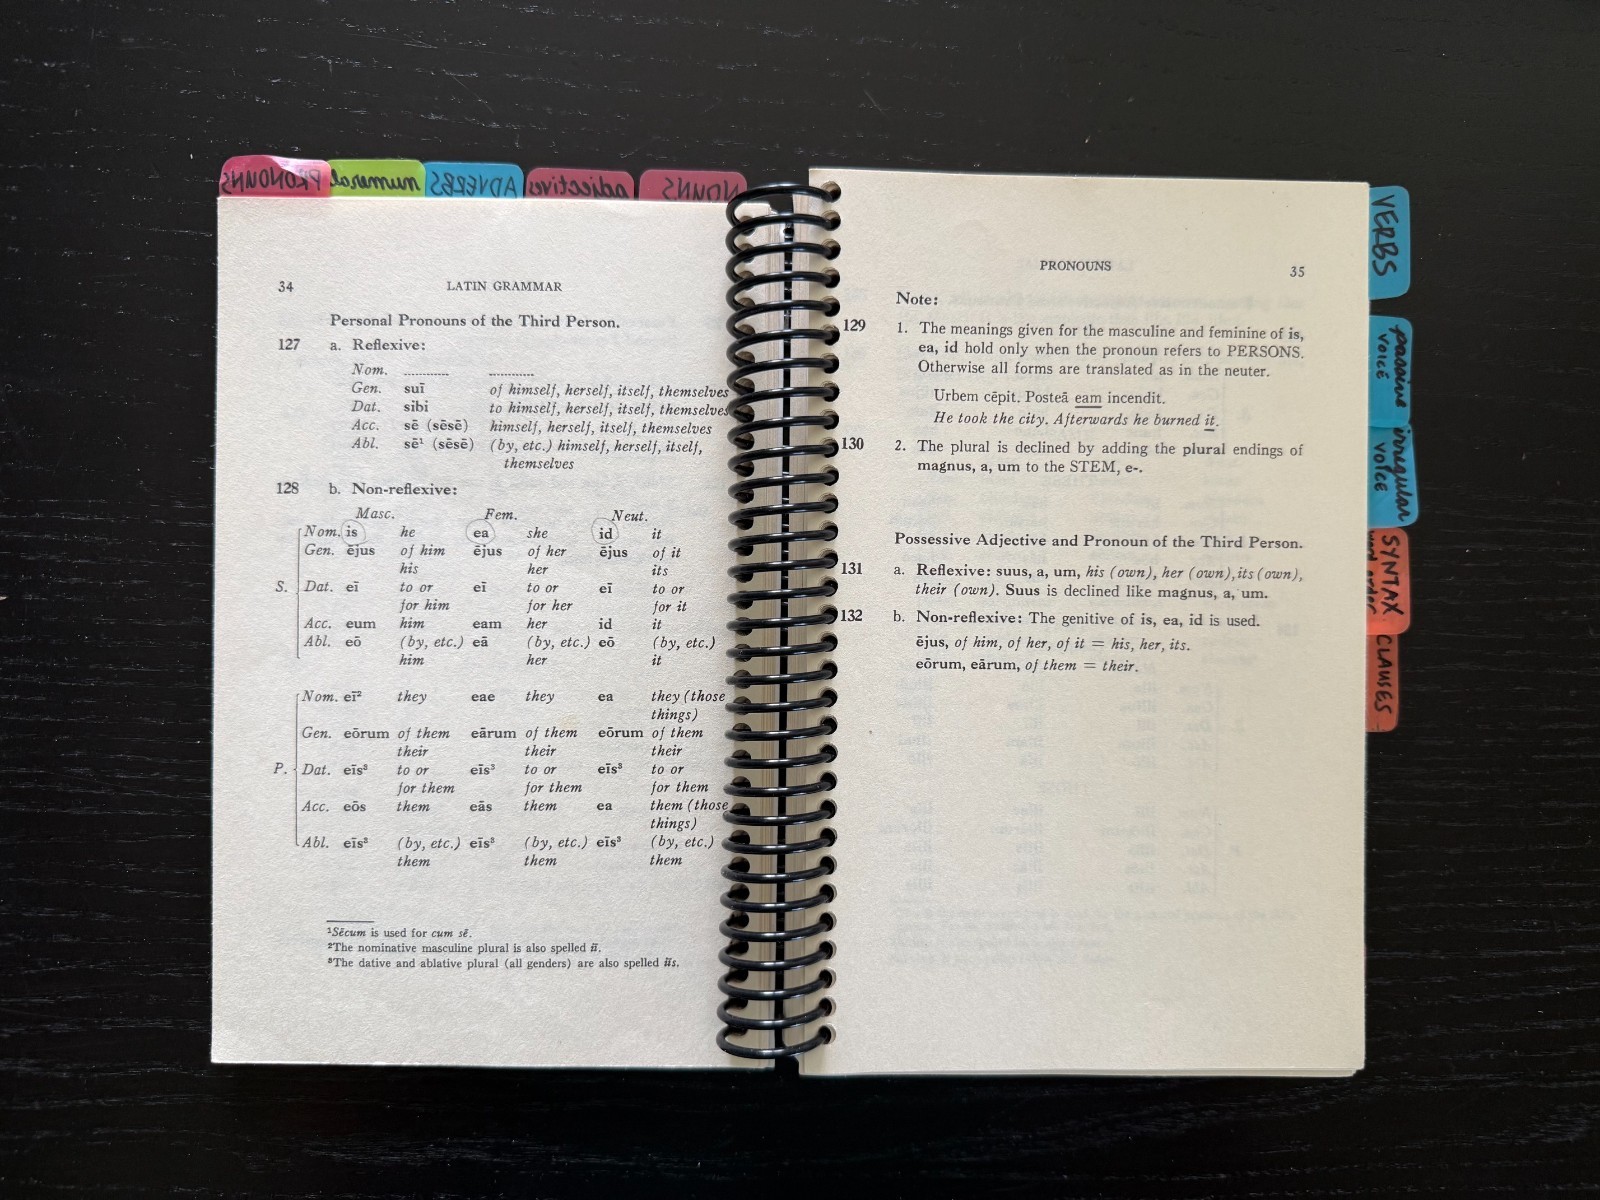 PRONOUNS
numeral
ADVERBS
adjectives
NOUNS
34 LATIN GRAMMAR
Personal Pronouns of the Third Person.
127 a. Reflexive:
Nom. ............ ............
Gen. suī of himself, herself, itself, themselves
Dat. sibi to himself, herself, itself, themselves
Acc. sē (sēsē) himself, herself, itself, themselves
Abl. sē¹ (sēsē) (by, etc.) himself, herself, itself,
themselves
128 b. Non-reflexive:
Masc. Fem. Neut.
Nom. is he ea she id it
Gen. ējus of him ējus of her ējus of it
his her its
S. Dat. eī to or eī to or eī to or
for him for her for it
Acc. eum him eam her id it
Abl. eō (by, etc.) eā (by, etc.) eō (by, etc.)
him her it
Nom. eī² they eae they ea they (those
things)
Gen. eōrum of them eārum of them eōrum of them
their their their
P. Dat. eīs³ to or eīs³ to or eīs³ to or
for them for them for them
Acc. eōs them eās them ea them (those
things)
Abl. eīs³ (by, etc.) eīs³ (by, etc.) eīs³ (by, etc.)
them them them
¹Sēcum is used for cum sē.
²The nominative masculine plural is also spelled iī.
³The dative and ablative plural (all genders) are also spelled iīs.
PRONOUNS 35
Note:
129 1. The meanings given for the masculine and feminine of is,
ea, id hold only when the pronoun refers to PERSONS.
Otherwise all forms are translated as in the neuter.
Urbem cēpit. Posteā eam incendit.
He took the city. Afterwards he burned it.
130 2. The plural is declined by adding the plural endings of
magnus, a, um to the STEM, e-.
Possessive Adjective and Pronoun of the Third Person.
131 a. Reflexive: suus, a, um, his (own), her (own), its (own),
their (own). Suus is declined like magnus, a, um.
132 b. Non-reflexive: The genitive of is, ea, id is used.
ējus, of him, of her, of it = his, her, its.
eōrum, eārum, of them = their.
VERBS
passive
VOICE
irregular
VOICE
SYNTAX
CLAUSES